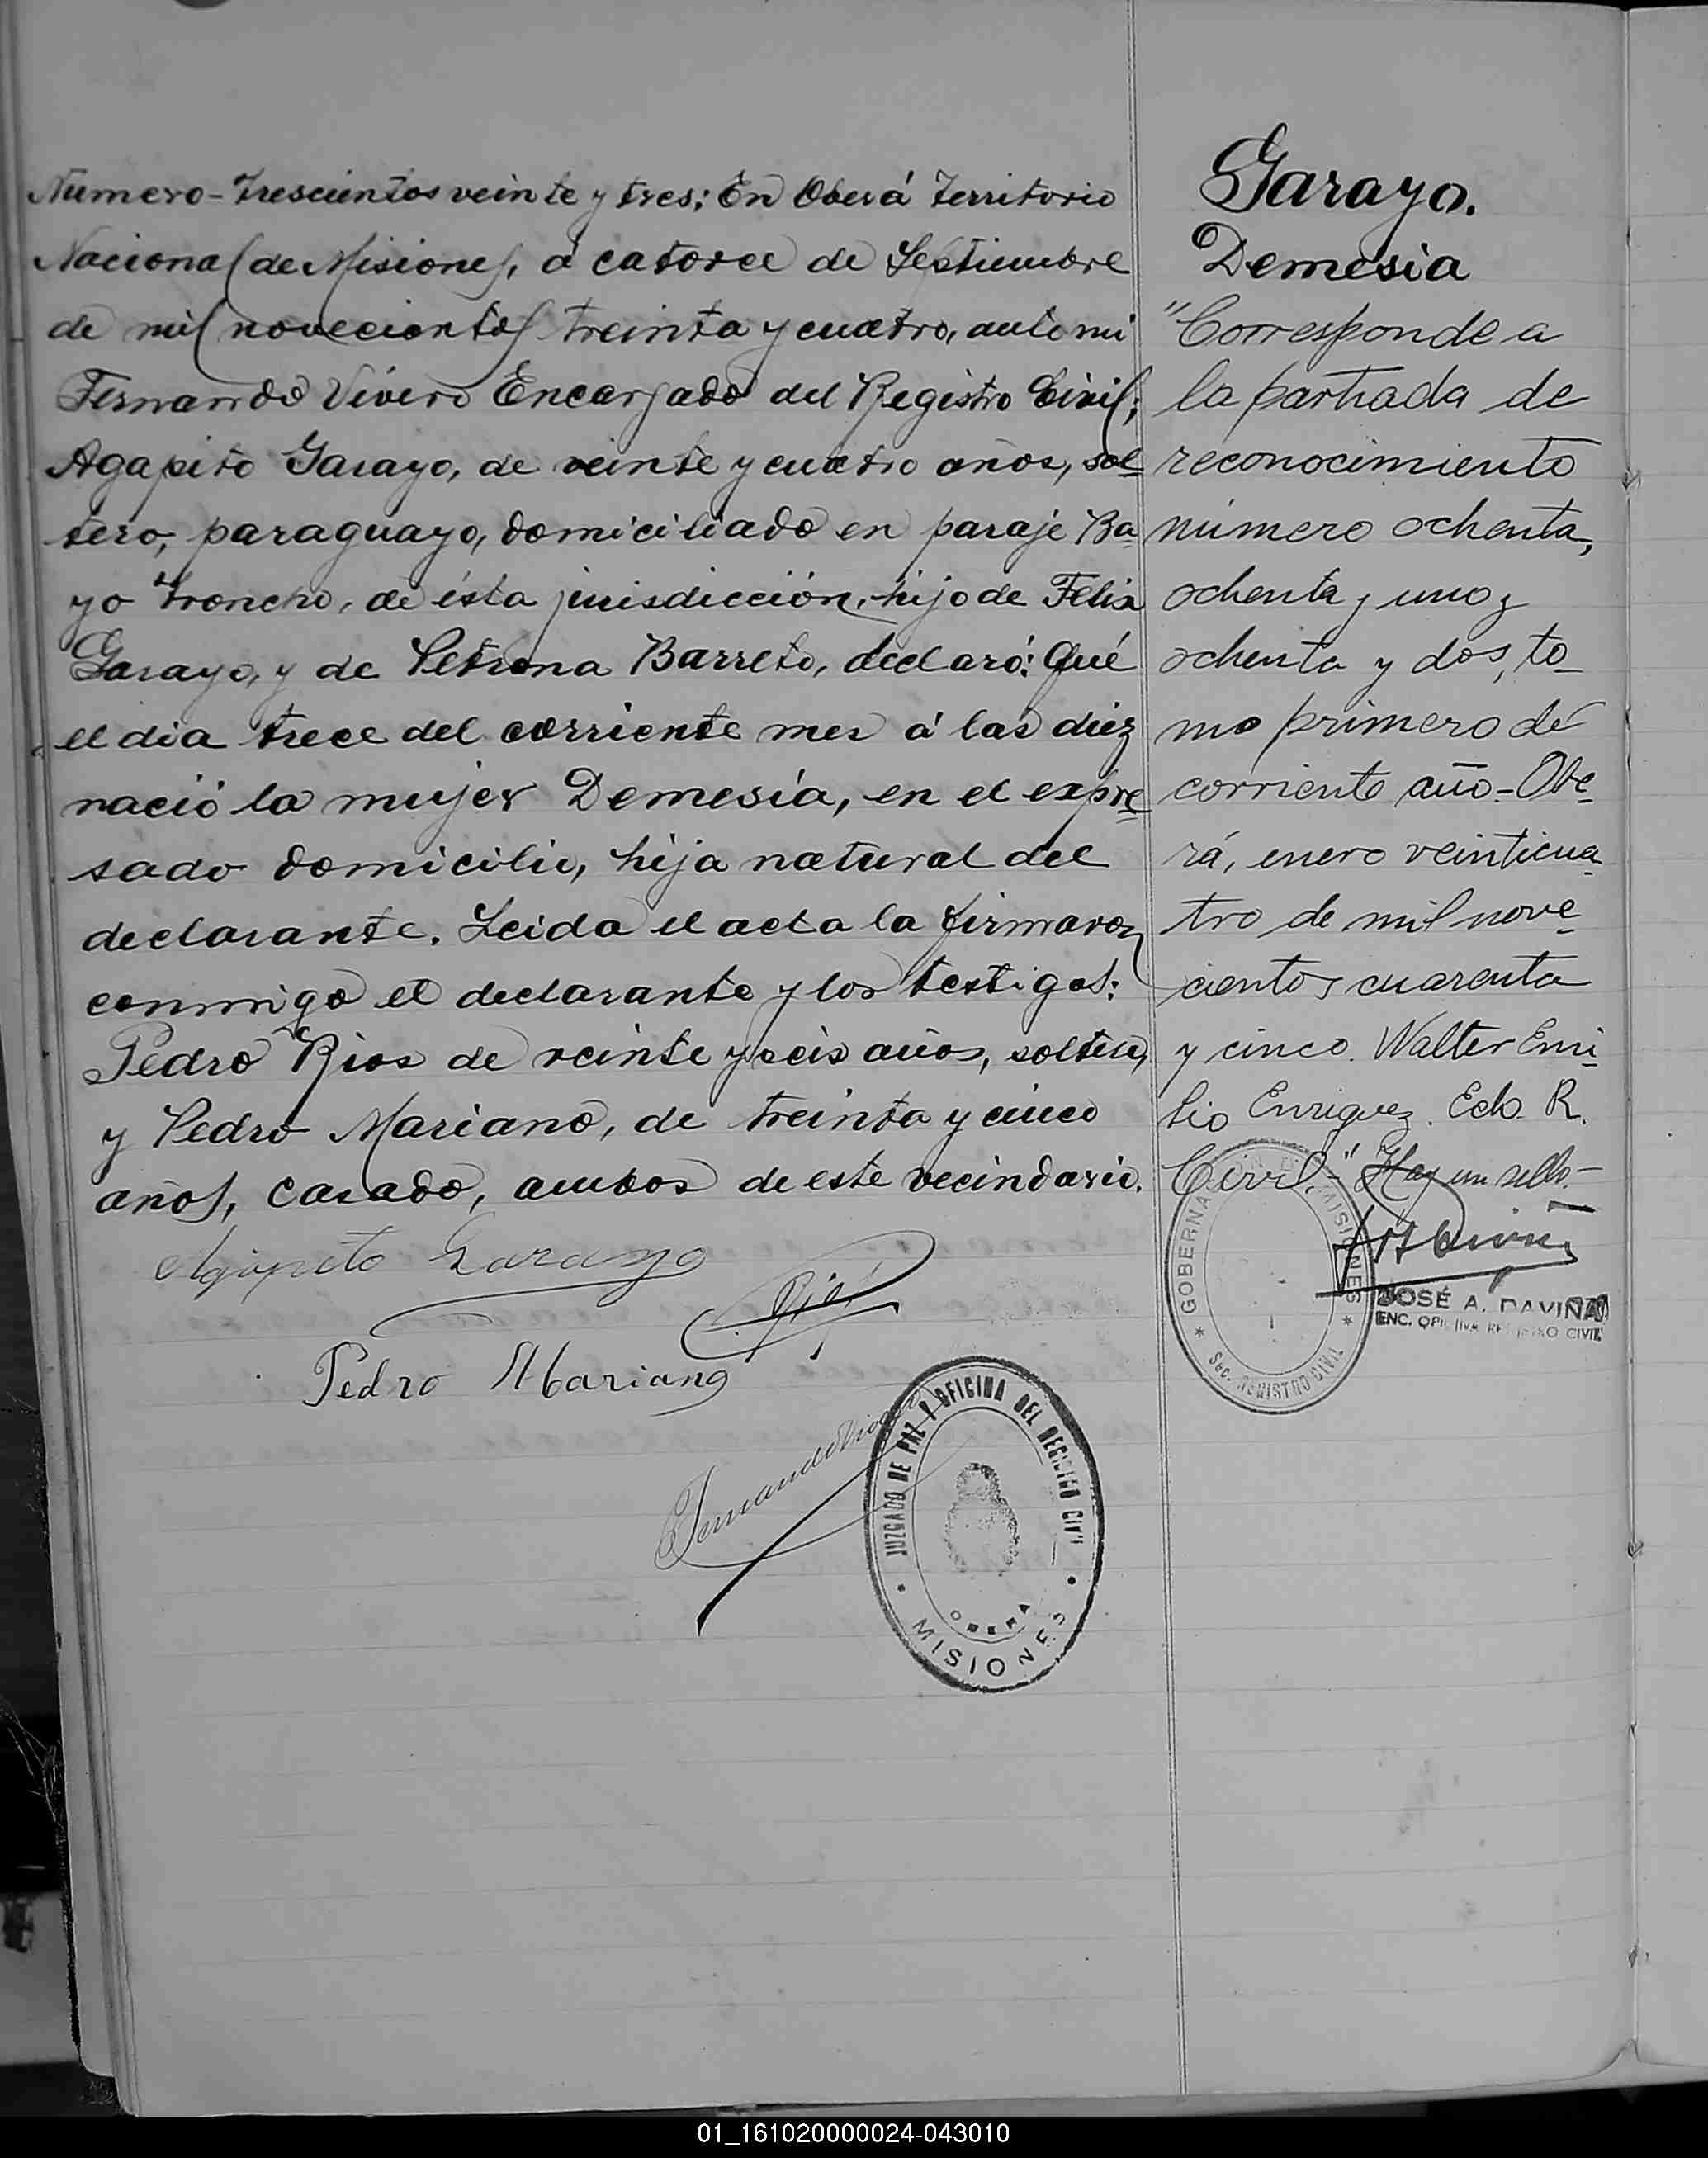 Número-Trescientos veinte y tres; En Oberá Territorio
Nacional de Misiones, á catorce de Septiembre
de mil novecientos treinta y cuatro, ante mi
Fernando Vivero Encargado del Registro Civil;
Agapito Garayo, de veinte y cuatro años, sol
tero, paraguayo, domiciliado en paraje Ba
yo Troncho, de ésta jurisdicción, hijo de Felix
Garayo, y de Petrona Barreto, declaró: Qué
el dia trece del corriente mes á las diez
nació la mujer Demesía, en el expre
sado domicilio, hija natural del
declarante. Leida el acta la firmaron
conmigo el declarante y los testigos:
Pedro Rios de veinte y seis años, soltero,
y Pedro Mariano, de treinta y cinco
años, casado, ambos de este vecindario.
Agapito Garayo
Pedro Mariano
Fernando Vivero
JUZGADO DE PAZ Y OFICINA DEL REGISTRO CIVIL
OBERA
MISIONES
Garayo.
Demesia
"Corresponde a
la partiada de
reconocimiento
número ochenta,
ochenta y uno y
ochenta y dos, to-
mo primero de
corriente año-Obe-
rá, enero veinticua-
tro de mil nove-
cientos cuarenta
y cinco. Walter Emi-
lio Enriquez. Ecb. R.
Civil." Hay un sello.-
GOBERNACION DE MISIONES
Sec. REGISTRO CIVIL
JOSÉ A. DAVIÑA
ENC. OFICINA REGISTRO CIVIL
01_161020000024-043010